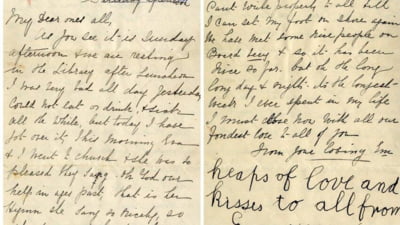 My Dear ones all,
As you see it is Sunday
afternoon & we are resting
in the Library after Luncheon
I was very bad all day yesterday
Could not eat or drink & sick
all the while, but today I have
got over it. This Morning Eva
& I went to church & she was so
pleased they Sang. Oh God our
help in ages past that is her
Hymn she Sang so nicely, so
Can't write properly to all till
I can Set my foot on shore again
We have met some nice people on
Board Lucy & so it has been
Nice so far. but oh the long
Long day & night. its the longest
break I ever spent in my life
I must close now with all our
Fondest love to all of you
From your loving Em
heaps of love and
kisses to all from